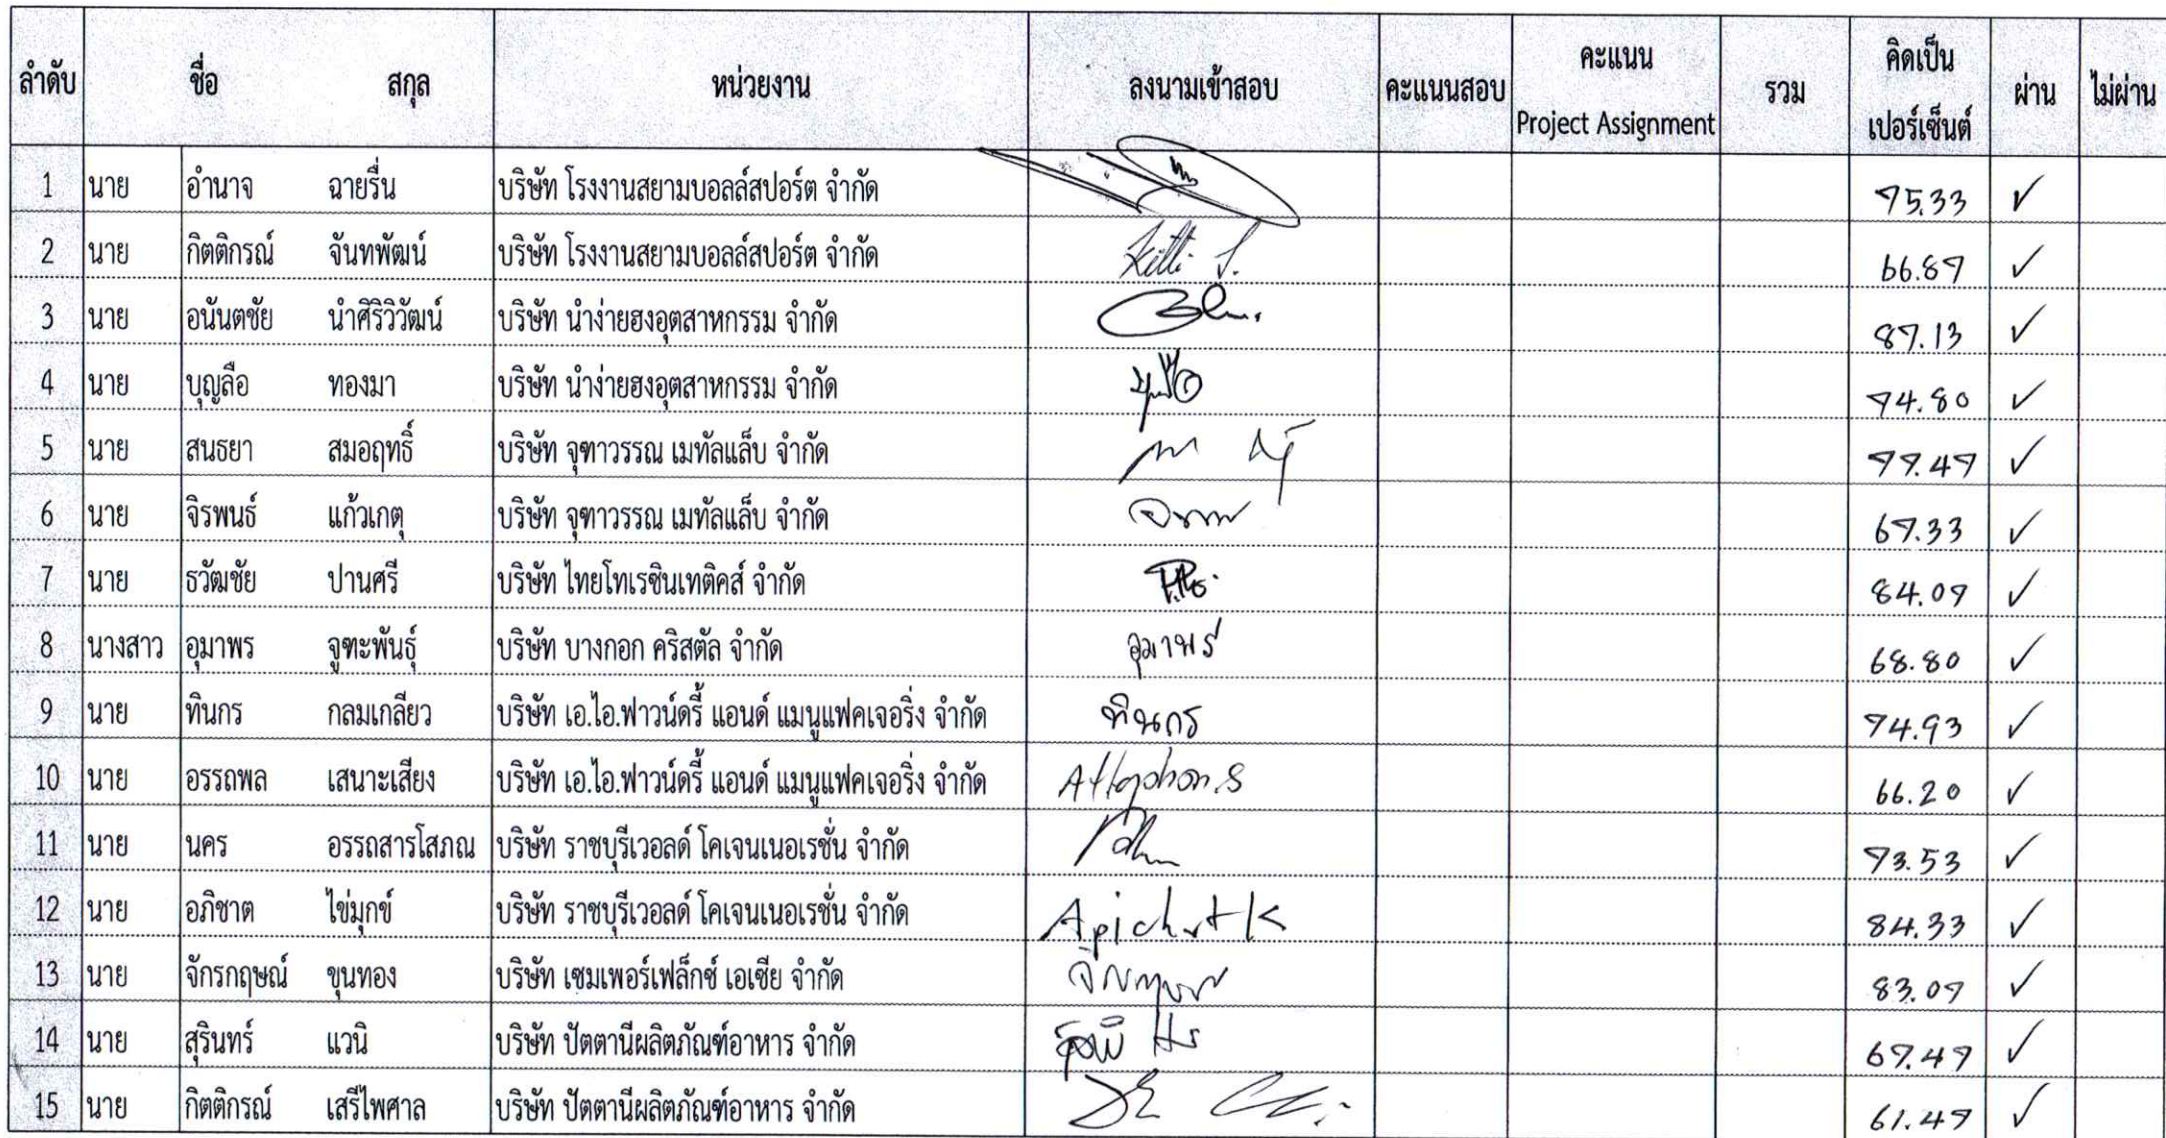 ลำดับ ชื่อ สกุล หน่วยงาน ลงนามเข้าสอบ คะแนนสอบ คะแนน Project Assignment รวม คิดเป็น เปอร์เซ็นต์ ผ่าน ไม่ผ่าน
1 นาย อำนาจ ฉายรื่น บริษัท โรงงานสยามบอลล์สปอร์ต จำกัด 75.33 ✓
2 นาย กิตติกรณ์ จันทพัฒน์ บริษัท โรงงานสยามบอลล์สปอร์ต จำกัด Kitti J. 66.87 ✓
3 นาย อนันตชัย นำศิริวิวัฒน์ บริษัท นำง่ายฮงอุตสาหกรรม จำกัด 87.13 ✓
4 นาย บุญลือ ทองมา บริษัท นำง่ายฮงอุตสาหกรรม จำกัด 74.80 ✓
5 นาย สนธยา สมอฤทธิ์ บริษัท จุฑาวรรณ เมทัลแล็บ จำกัด 77.47 ✓
6 นาย จิรพนธ์ แก้วเกตุ บริษัท จุฑาวรรณ เมทัลแล็บ จำกัด 67.33 ✓
7 นาย ธวัฒชัย ปานศรี บริษัท ไทยโทเรซินเทติคส์ จำกัด 84.07 ✓
8 นางสาว อุมาพร จูฑะพันธุ์ บริษัท บางกอก คริสตัล จำกัด อุมาพร 68.80 ✓
9 นาย ทินกร กลมเกลียว บริษัท เอ.ไอ.ฟาวน์ดรี้ แอนด์ แมนูแฟคเจอริ่ง จำกัด ทินกร 74.93 ✓
10 นาย อรรถพล เสนาะเสียง บริษัท เอ.ไอ.ฟาวน์ดรี้ แอนด์ แมนูแฟคเจอริ่ง จำกัด Attaphon.S 66.20 ✓
11 นาย นคร อรรถสารโสภณ บริษัท ราชบุรีเวอลด์ โคเจนเนอเรชั่น จำกัด 73.53 ✓
12 นาย อภิชาต ไข่มุกข์ บริษัท ราชบุรีเวอลด์ โคเจนเนอเรชั่น จำกัด Apichat K 84.33 ✓
13 นาย จักรกฤษณ์ ขุนทอง บริษัท เซมเพอร์เฟล็กซ์ เอเซีย จำกัด 83.07 ✓
14 นาย สุรินทร์ แวนิ บริษัท ปัตตานีผลิตภัณฑ์อาหาร จำกัด 67.47 ✓
15 นาย กิตติกรณ์ เสรีไพศาล บริษัท ปัตตานีผลิตภัณฑ์อาหาร จำกัด 61.47 ✓